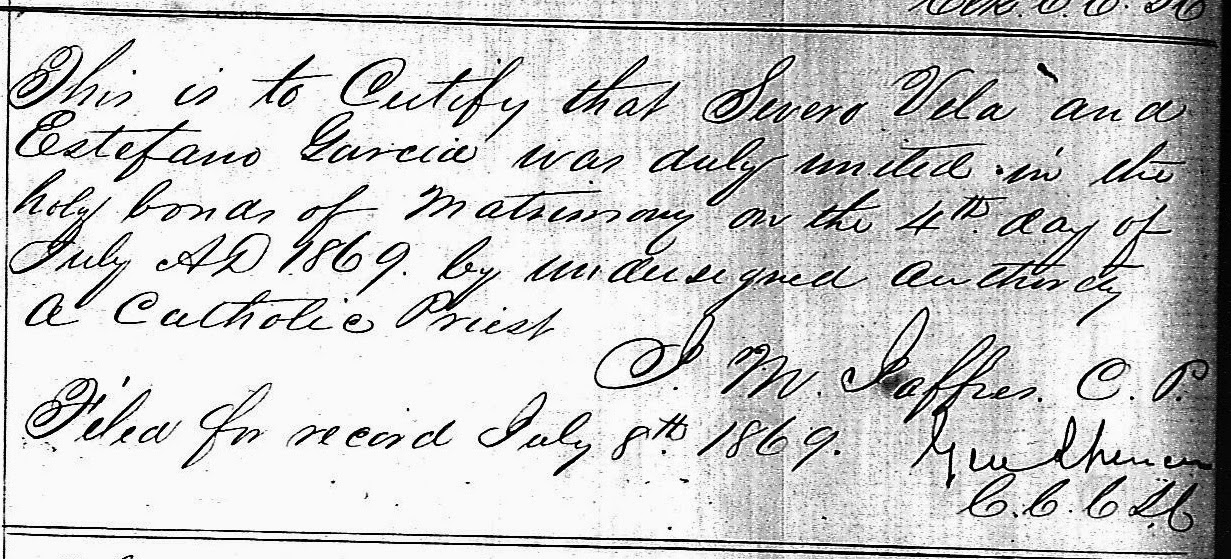 Clk. C. C. S C
This is to Certify that Severo Vela and
Estefano Garcia was duly united in the
holy bonds of Matrimony on the 4th. day of
July AD 1869. by undersigned authority
a Catholic Priest
J. M. Jaffres. C. P.
Filed for record July 8th. 1869.
C. C. C S. C